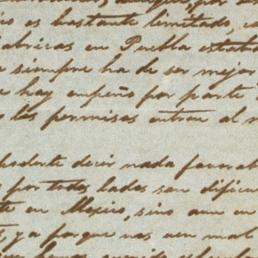 es bastante limitado,
fabricas en Puebla establ
siempre ha de ser mejor
hay empeño por parte
los permisos entran al m
podente decir nada favorab
por todos lados son dificul
en Mexico, sino aun en
ya porque nos en mal